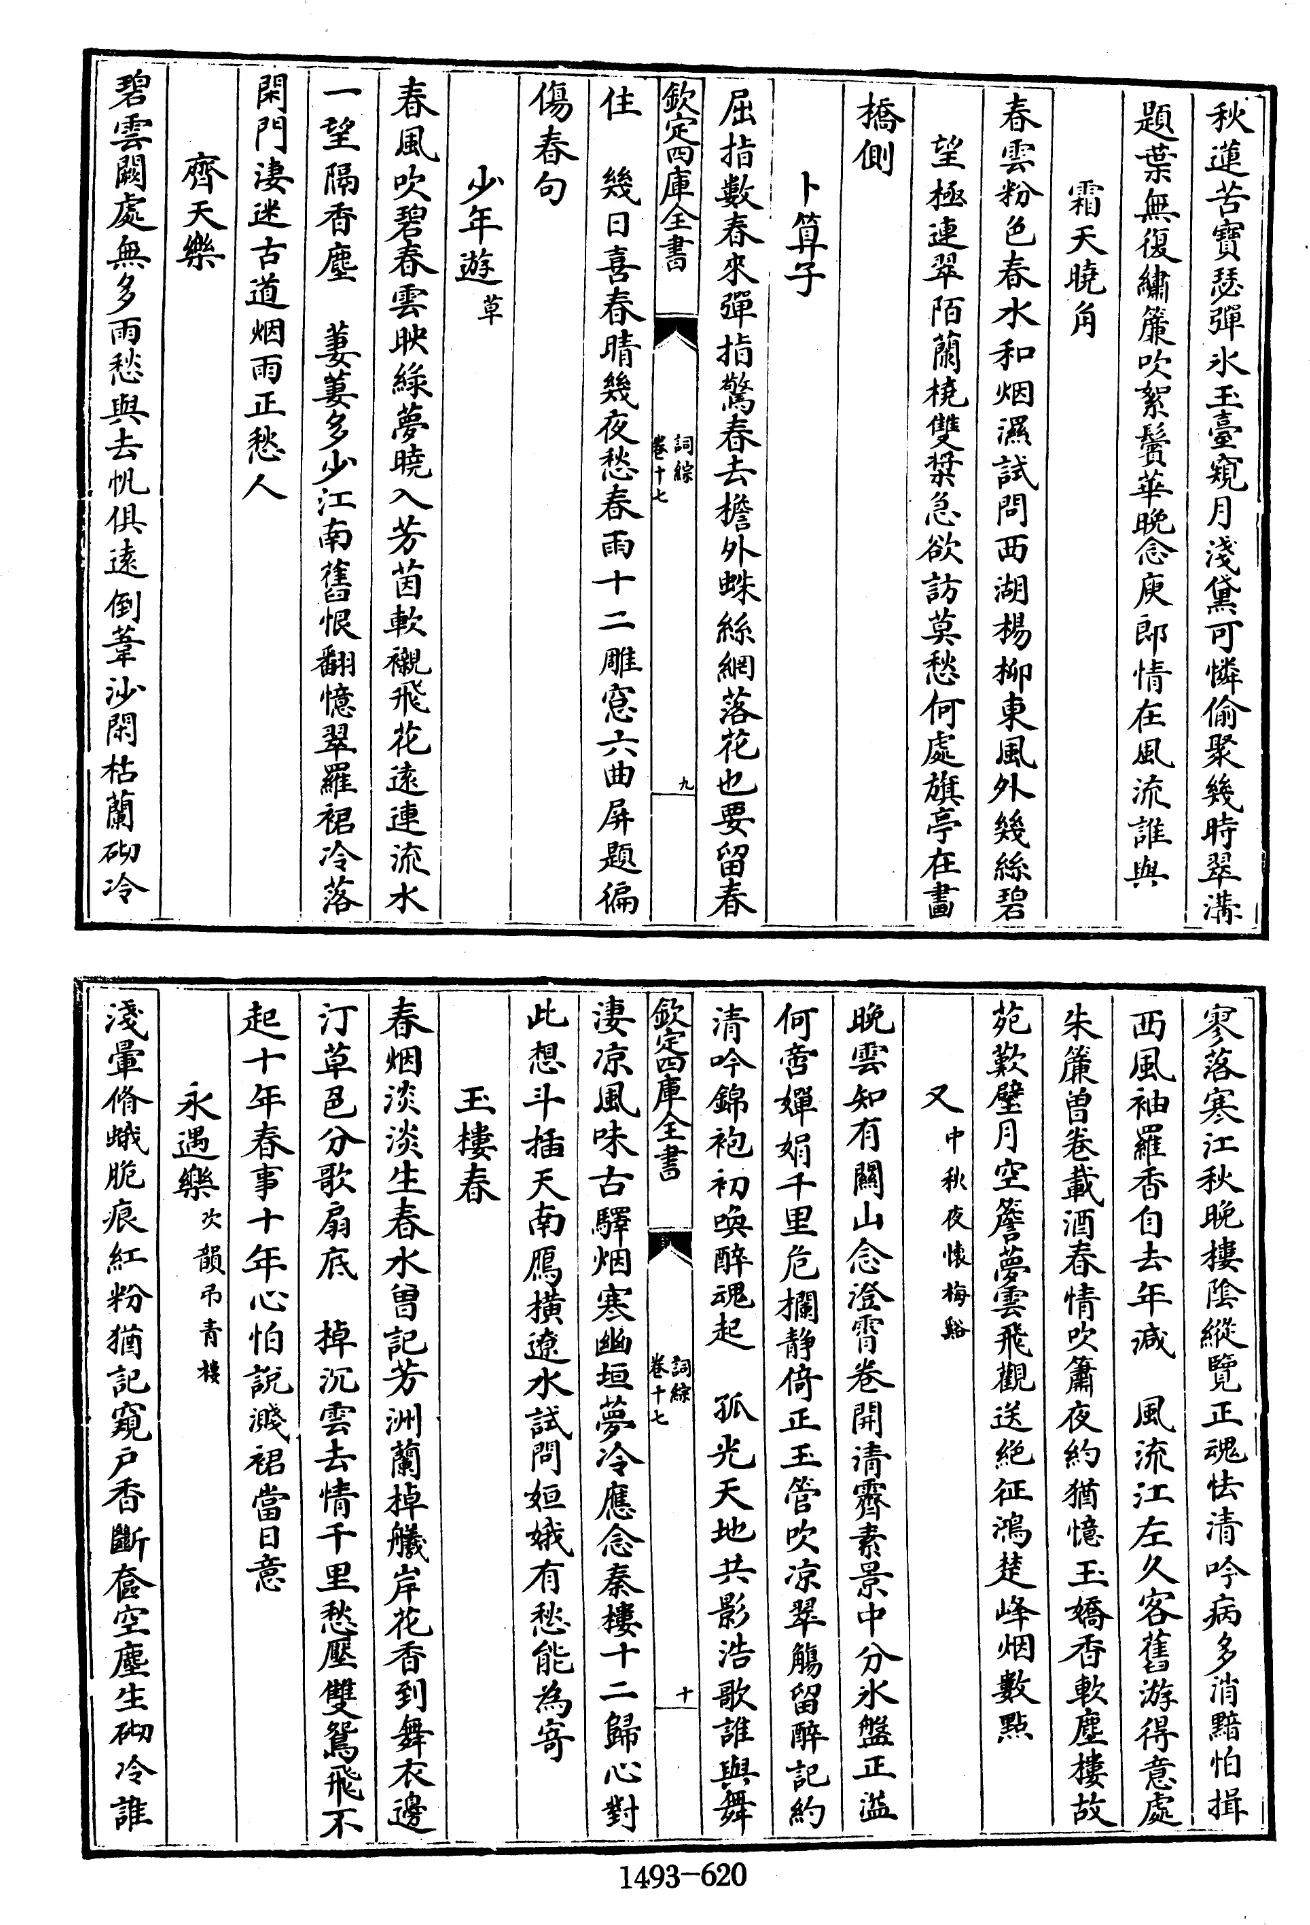 秋蓮苦寶瑟彈冰玉臺窺月淺黛可憐偷聚幾時翠溝
題葉無復繡簾吹絮鬢華晚念庾郎情在風流誰與
霜天曉角
春雲粉色春水和烟濕試問西湖楊柳東風外幾絲碧
望極連翠陌蘭橈雙槳急欲訪莫愁何處旗亭在畫
橋側
卜算子
屈指數春來彈指驚春去檐外蛛絲網落花也要留春
欽定四庫全書 詞綜 卷十七 九
住 幾日喜春晴幾夜愁春雨十二雕窓六曲屏題徧
傷春句
少年遊 草
春風吹碧春雲映綠夢曉入芳茵軟襯飛花遠連流水
一望隔香塵 萋萋多少江南舊恨翻憶翠羅裙冷落
閑門淒迷古道烟雨正愁人
齊天樂
碧雲闕處無多雨愁與去帆俱遠倒葦沙閑枯蘭砌冷
寥落寒江秋晚樓陰縱覽正魂怯清吟病多消黯怕揖
西風袖羅香自去年減 風流江左久客舊游得意處
朱簾曾卷載酒春情吹簫夜約猶憶玉嬌香軟塵樓故
苑歎璧月空簷夢雲飛觀送絕征鴻楚峰烟數點
又 中秋夜懷梅谿
晚雲知有關山念澄霄卷開清霽素景中分冰盤正溢
何啻嬋娟千里危欄靜倚正玉管吹涼翠觴留醉記約
清吟錦袍初喚醉魂起 孤光天地共影浩歌誰與舞
欽定四庫全書 詞綜 卷十七 十
淒凉風味古驛烟寒幽垣夢冷應念秦樓十二歸心對
此想斗插天南鴈橫遼水試問姮娥有愁能為寄
玉樓春
春烟淡淡生春水曾記芳洲蘭棹艤岸花香到舞衣邊
汀草色分歌扇底 棹沉雲去情千里愁壓雙鴛飛不
起十年春事十年心怕說濺裙當日意
永遇樂 次韻弔青樓
淺暈脩蛾脆痕紅粉猶記窺户香斷奩空塵生砌冷誰
1493-620